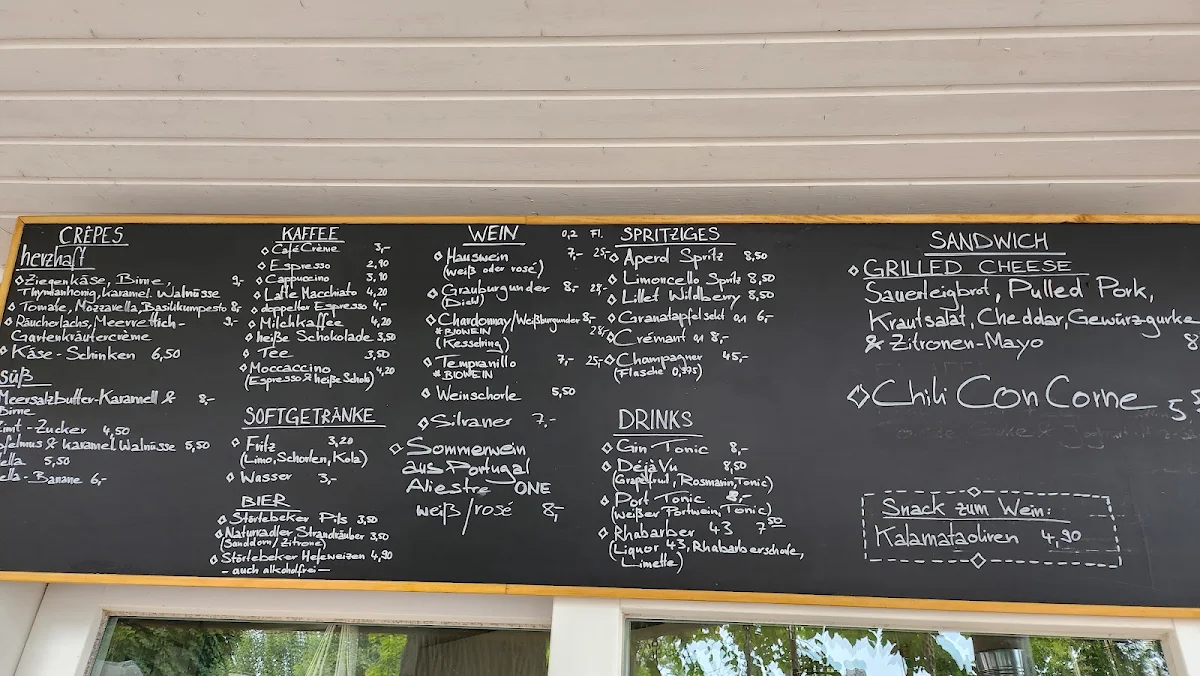 CRÊPES
herzhaft
◇ Ziegenkäse, Birne, 9,-
Thymianhonig, karamel. Walnüsse
◇ Tomate, Mozzarella, Basilikumpesto 8,-
◇ Räucherlachs, Meerrettich- 9,-
Gartenkräutercrème
◇ Käse-Schinken 6,50
süß
Meersalzbutter-Karamell & 8,-
Birne
Zimt-Zucker 4,50
pfelmus & karamel. Walnüsse 5,50
ella 5,50
ella-Banane 6,-
KAFFEE
◇ Café Crème 3,-
◇ Espresso 2,90
◇ Cappuccino 3,90
◇ Latte Macchiato 4,20
◇ doppelter Espresso 4,-
◇ Milchkaffee 4,20
◇ heiße Schokolade 3,50
◇ Tee 3,50
◇ Moccaccino 4,20
(Espresso & heiße Schoki)
SOFTGETRÄNKE
◇ Fritz 3,20
(Limo, Schorlen, Kola)
◇ Wasser 3,-
BIER
◇ Störtebeker Pils 3,50
◇ Naturradler Strandräuber 3,50
(Sanddorn/Zitrone)
◇ Störtebeker Hefeweizen 4,90
- auch alkoholfrei -
WEIN 0,2 Fl.
◇ Hauswein 7,- 25,-
(weiß oder rosé)
◇ Grauburgunder 8,- 28,-
(Diehl)
◇ Chardonnay/Weißburgunder 8,-
* BIOWEIN 28,-
(Kesselring)
◇ Tempranillo 7,- 25,-
* BIOWEIN
◇ Weinschorle 5,50
◇ Silvaner 7,-
◇ Sommerwein
aus Portugal
Aliestre ONE
weiß/rosé 8,-
SPRITZIGES
◇ Aperol Spritz 8,50
◇ Limoncello Spritz 8,50
◇ Lillet Wildberry 8,50
◇ Granatapfelsekt 0,1 6,-
◇ Crémant 0,1 8,-
◇ Champagner 45,-
(Flasche 0,375)
DRINKS
◇ Gin Tonic 8,-
◇ DéjàVu 8,50
(Grapefruit, Rosmarin, Tonic)
◇ Port Tonic 8,-
(weißer Portwein, Tonic)
◇ Rhabarber 43 7 50
(Liquor 43, Rhabarberschorle,
Limette)
SANDWICH
◇ GRILLED CHEESE
Sauerteigbrot, Pulled Pork,
Krautsalat, Cheddar, Gewürzgurke
& Zitronen-Mayo 8
◇ Chili Con Corne 5
Snack zum Wein:
Kalamataoliven 4,90